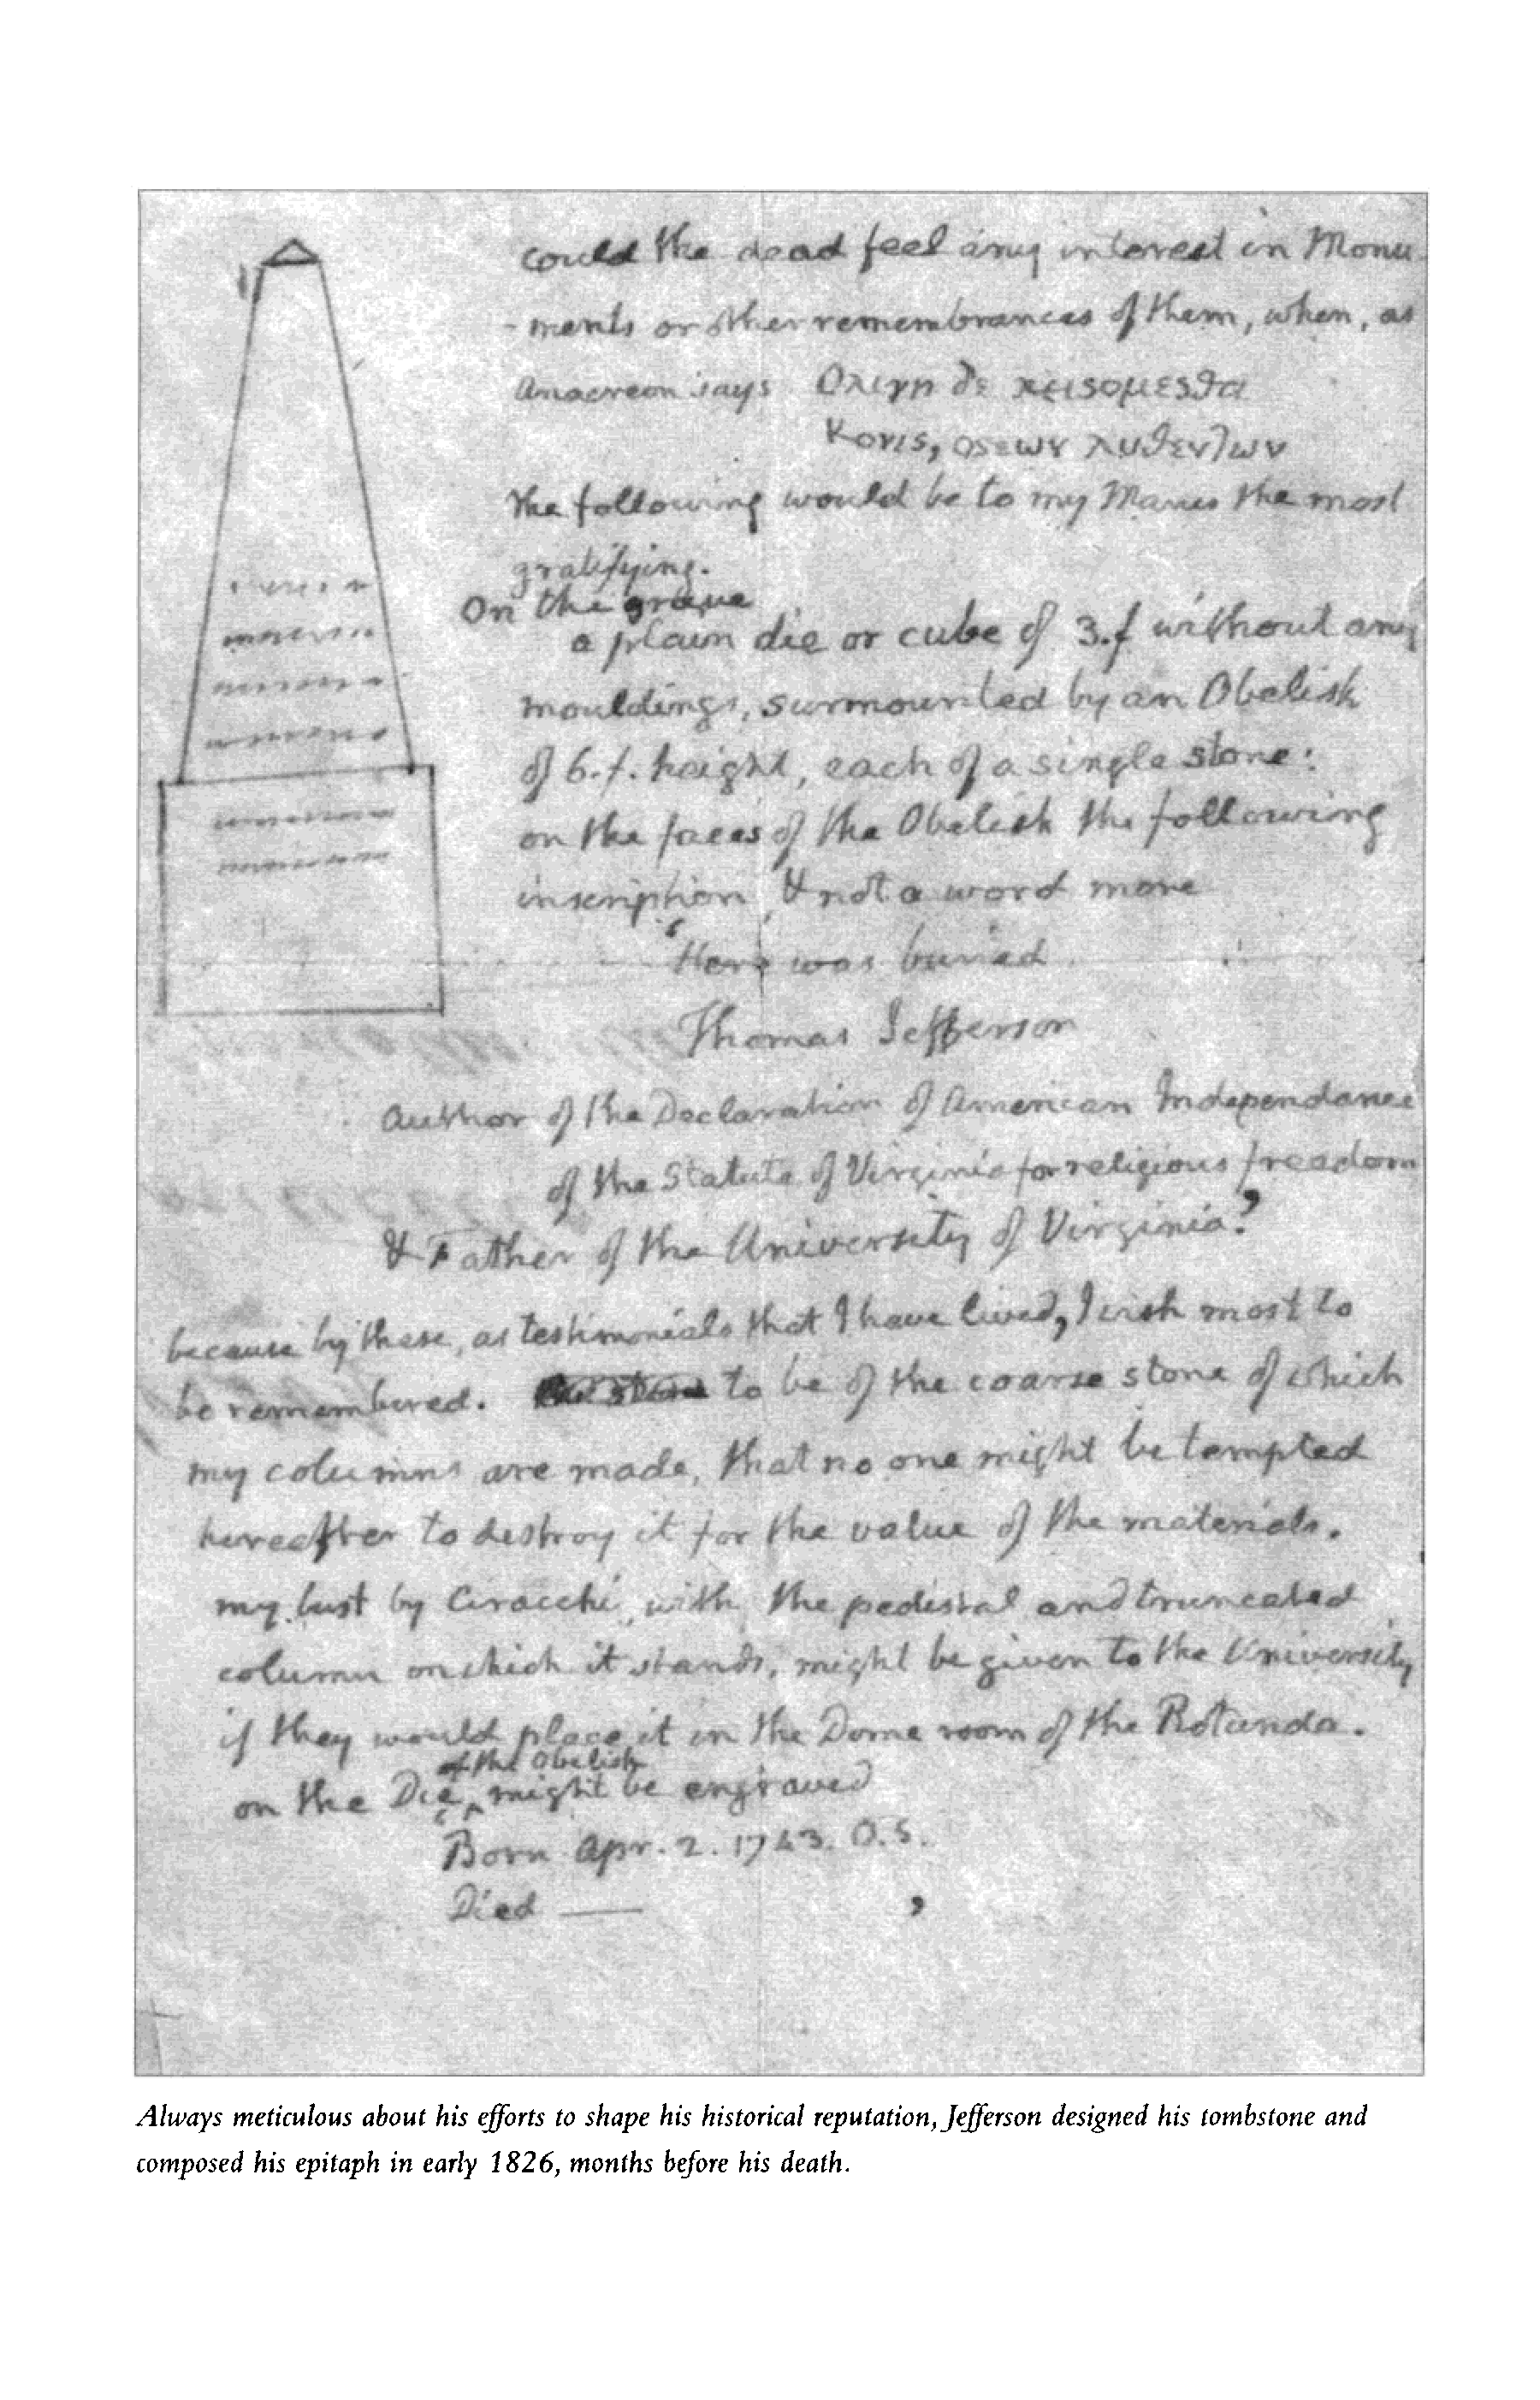 could the dead feel any interest in Monu
-ments or other remembrances of them, when, as
Anacreon says Ολιγη δε κεισομεσθα
Κονις, οσεων λυθεντων
The following would be to my Manes the most
gratifying.
On the grave
a plain die or cube of 3.f without any
mouldings, surmounted by an Obelisk
of 6.f. height, each of a single stone:
on the faces of the Obelisk the following
inscription, & not a word more
‘Here was buried
Thomas Jefferson
Author of the Declaration of American Independance
of the Statute of Virginia for religious freedom
& Father of the University of Virginia.’
because by these, as testimonials that I have lived, I wish most to
be remembered. to be of the coarse stone of which
my columns are made, that no one might be tempted
hereafter to destroy it for the value of the materials.
my bust by Ciracchi, with the pedestal and truncated
column on which it stands, might be given to the University
if they would place it in the Dome room of the Rotunda.
of the Obelisk
on the Die might be engraved
Born Apr. 2. 1743. O.S.
Died ——— ’
Always meticulous about his efforts to shape his historical reputation, Jefferson designed his tombstone and
composed his epitaph in early 1826, months before his death.